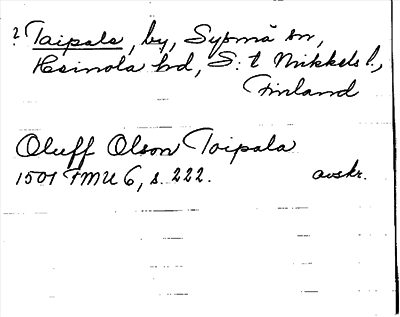 ? Taipale, by, Sysmä sn,
Heinola hd, S:t Mikkels l.,
Finland
Oluff Olson Toipala
1501 FMU 6, s. 222. avskr.